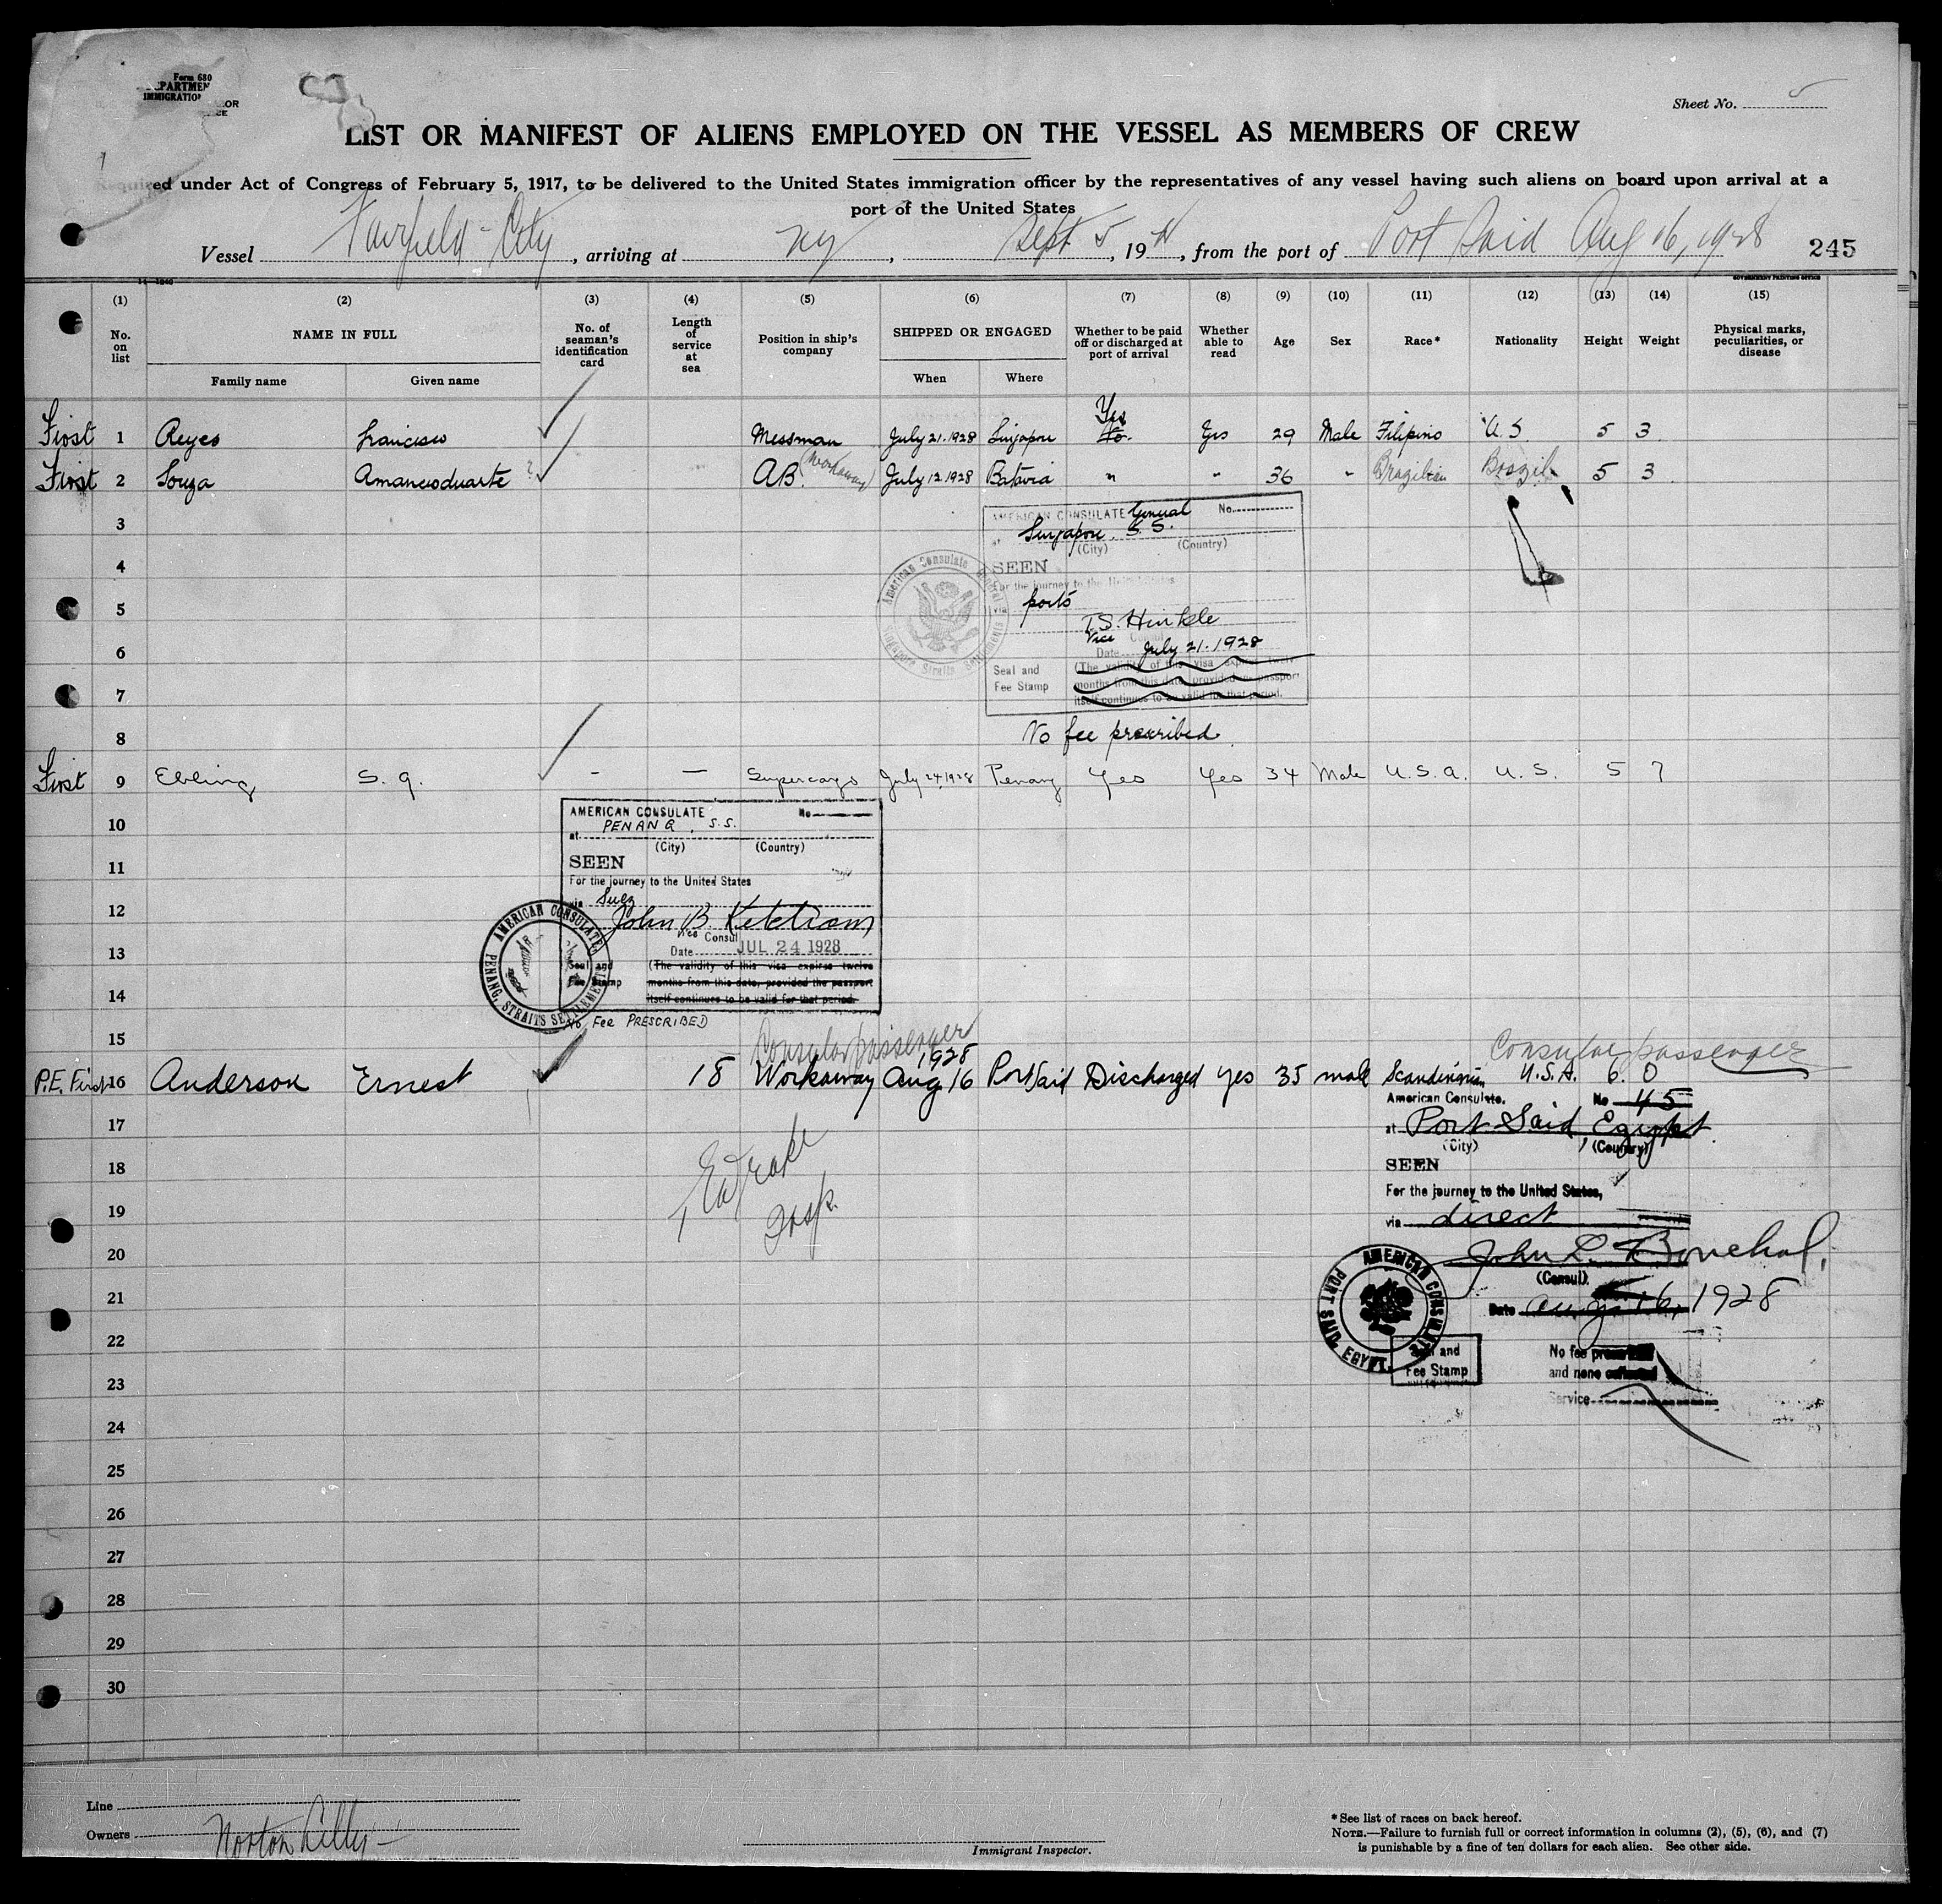 Form 680
IMMIGRATION
Sheet No. 5
LIST OR MANIFEST OF ALIENS EMPLOYED ON THE VESSEL AS MEMBERS OF CREW
Required under Act of Congress of February 5, 1917, to be delivered to the United States immigration officer by the representatives of any vessel having such aliens on board upon arrival at a
port of the United States
Vessel Fairfield City, arriving at NY, Sept 5, 19, from the port of Port Said Aug 16, 1928 245
GOVERNMENT PRINTING OFFICE
(1) (2) (3) (4) (5) (6) (7) (8) (9) (10) (11) (12) (13) (14) (15)
No. on list NAME IN FULL No. of seaman's identification card Length of service at sea Position in ship's company SHIPPED OR ENGAGED Whether to be paid off or discharged at port of arrival Whether able to read Age Sex Race* Nationality Height Weight Physical marks, peculiarities, or disease
Family name Given name When Where
Yes
First 1 Reyes Francisco Messman July 21. 1928 Singapore No. Yes 29 Male Filipino U.S. 5 3
First 2 Souza Amancioduarte ? AB. (Workaway) July 12 1928 Batavia " " 36 " Brazilian Brazil 5 3
3
AMERICAN CONSULATE General No.
at Singapore. S.S.
(City) (Country)
4
SEEN
For the journey to the United States
5
via ports
T.S. Hinkle
Vice Consul
6
Date July 21. 1928
American Consulate General
Singapore Straits Settlements
Seal and
Fee Stamp
(The validity of this visa expires twelve
months from this date, provided the passport
itself continues to be valid for that period.
7
8
No fee prescribed
First 9 Ebling, S. G. - - Supercargo July 24, 1928 Penang Yes Yes 34 Male U.S.A. U.S. 5 7
10
AMERICAN CONSULATE No
at PENANG, S.S.
(City) (Country)
11
SEEN
For the journey to the United States
12
via Suez
John B. Ketcham
Vice Consul
13
Date JUL 24 1928
AMERICAN CONSULATE
PENANG, STRAITS SETTLEMENTS
Seal and
Fee Stamp
(The validity of this visa expires twelve
months from this date, provided the passport
itself continues to be valid for that period.
14
No FEE PRESCRIBED
15
Consular passenger
Consular passenger
P.E. First 16 Anderson Ernest 18 Workaway 1928 Aug 16 Port Said Discharged yes 35 male Scandinavian U.S.A. 6. 0
American Consulate. No 45
17
at Port Said, Egypt.
(City) (Country)
18
SEEN
For the journey to the United States,
19
via direct
Insp.
20
(Consul)
21
Date Aug. 16, 1928
AMERICAN CONSULATE
PORT SAID, EGYPT.
22
Seal and
Fee Stamp
No fee prescribed
and none collected
Service
23
24
25
26
27
28
29
30
Line
Owners Norton Lilly
Immigrant Inspector.
*See list of races on back hereof.
NOTE.—Failure to furnish full or correct information in columns (2), (5), (6), and (7)
is punishable by a fine of ten dollars for each alien. See other side.